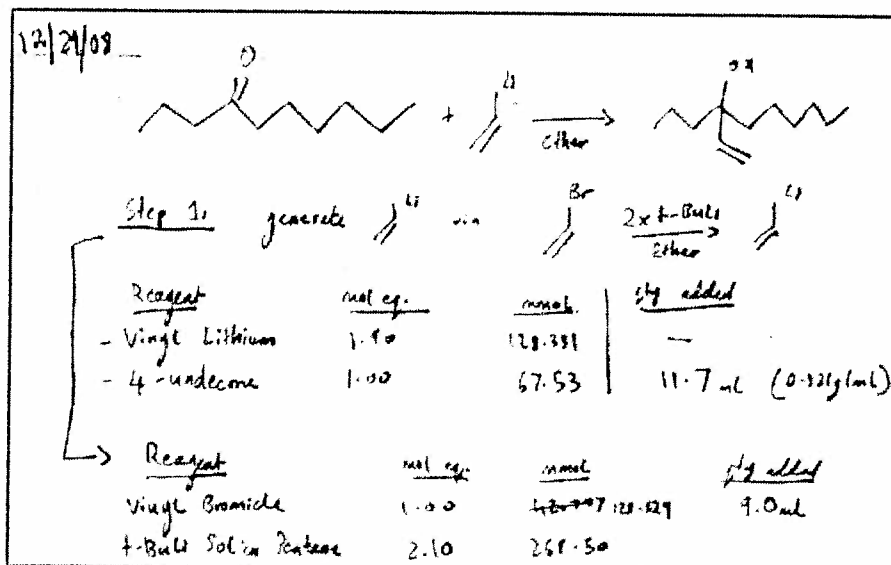 12/29/08
O
Li
OH
+
Ether
Step 1: generate Li via Br 2x t-BuLi Li
Ether
Reagent mol eq. mmol. qty added
- Vinyl Lithium 1.90 128.331 —
- 4-undecone 1.00 67.53 11.7 mL
Reagent mol eq. mmol qty added
Vinyl Bromide 1.00 9.0mL
t-BuLi Sol'n Pentane 2.10